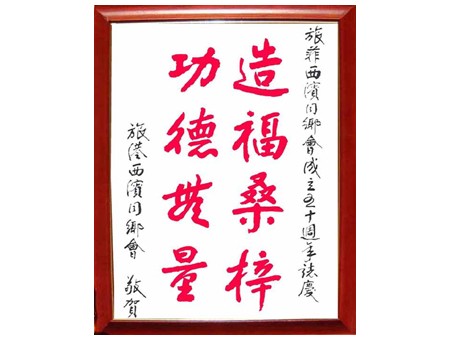 旅菲西濱同鄉會成立五十週年誌慶
造福桑梓
功德無量
旅港西濱同鄉會 敬賀